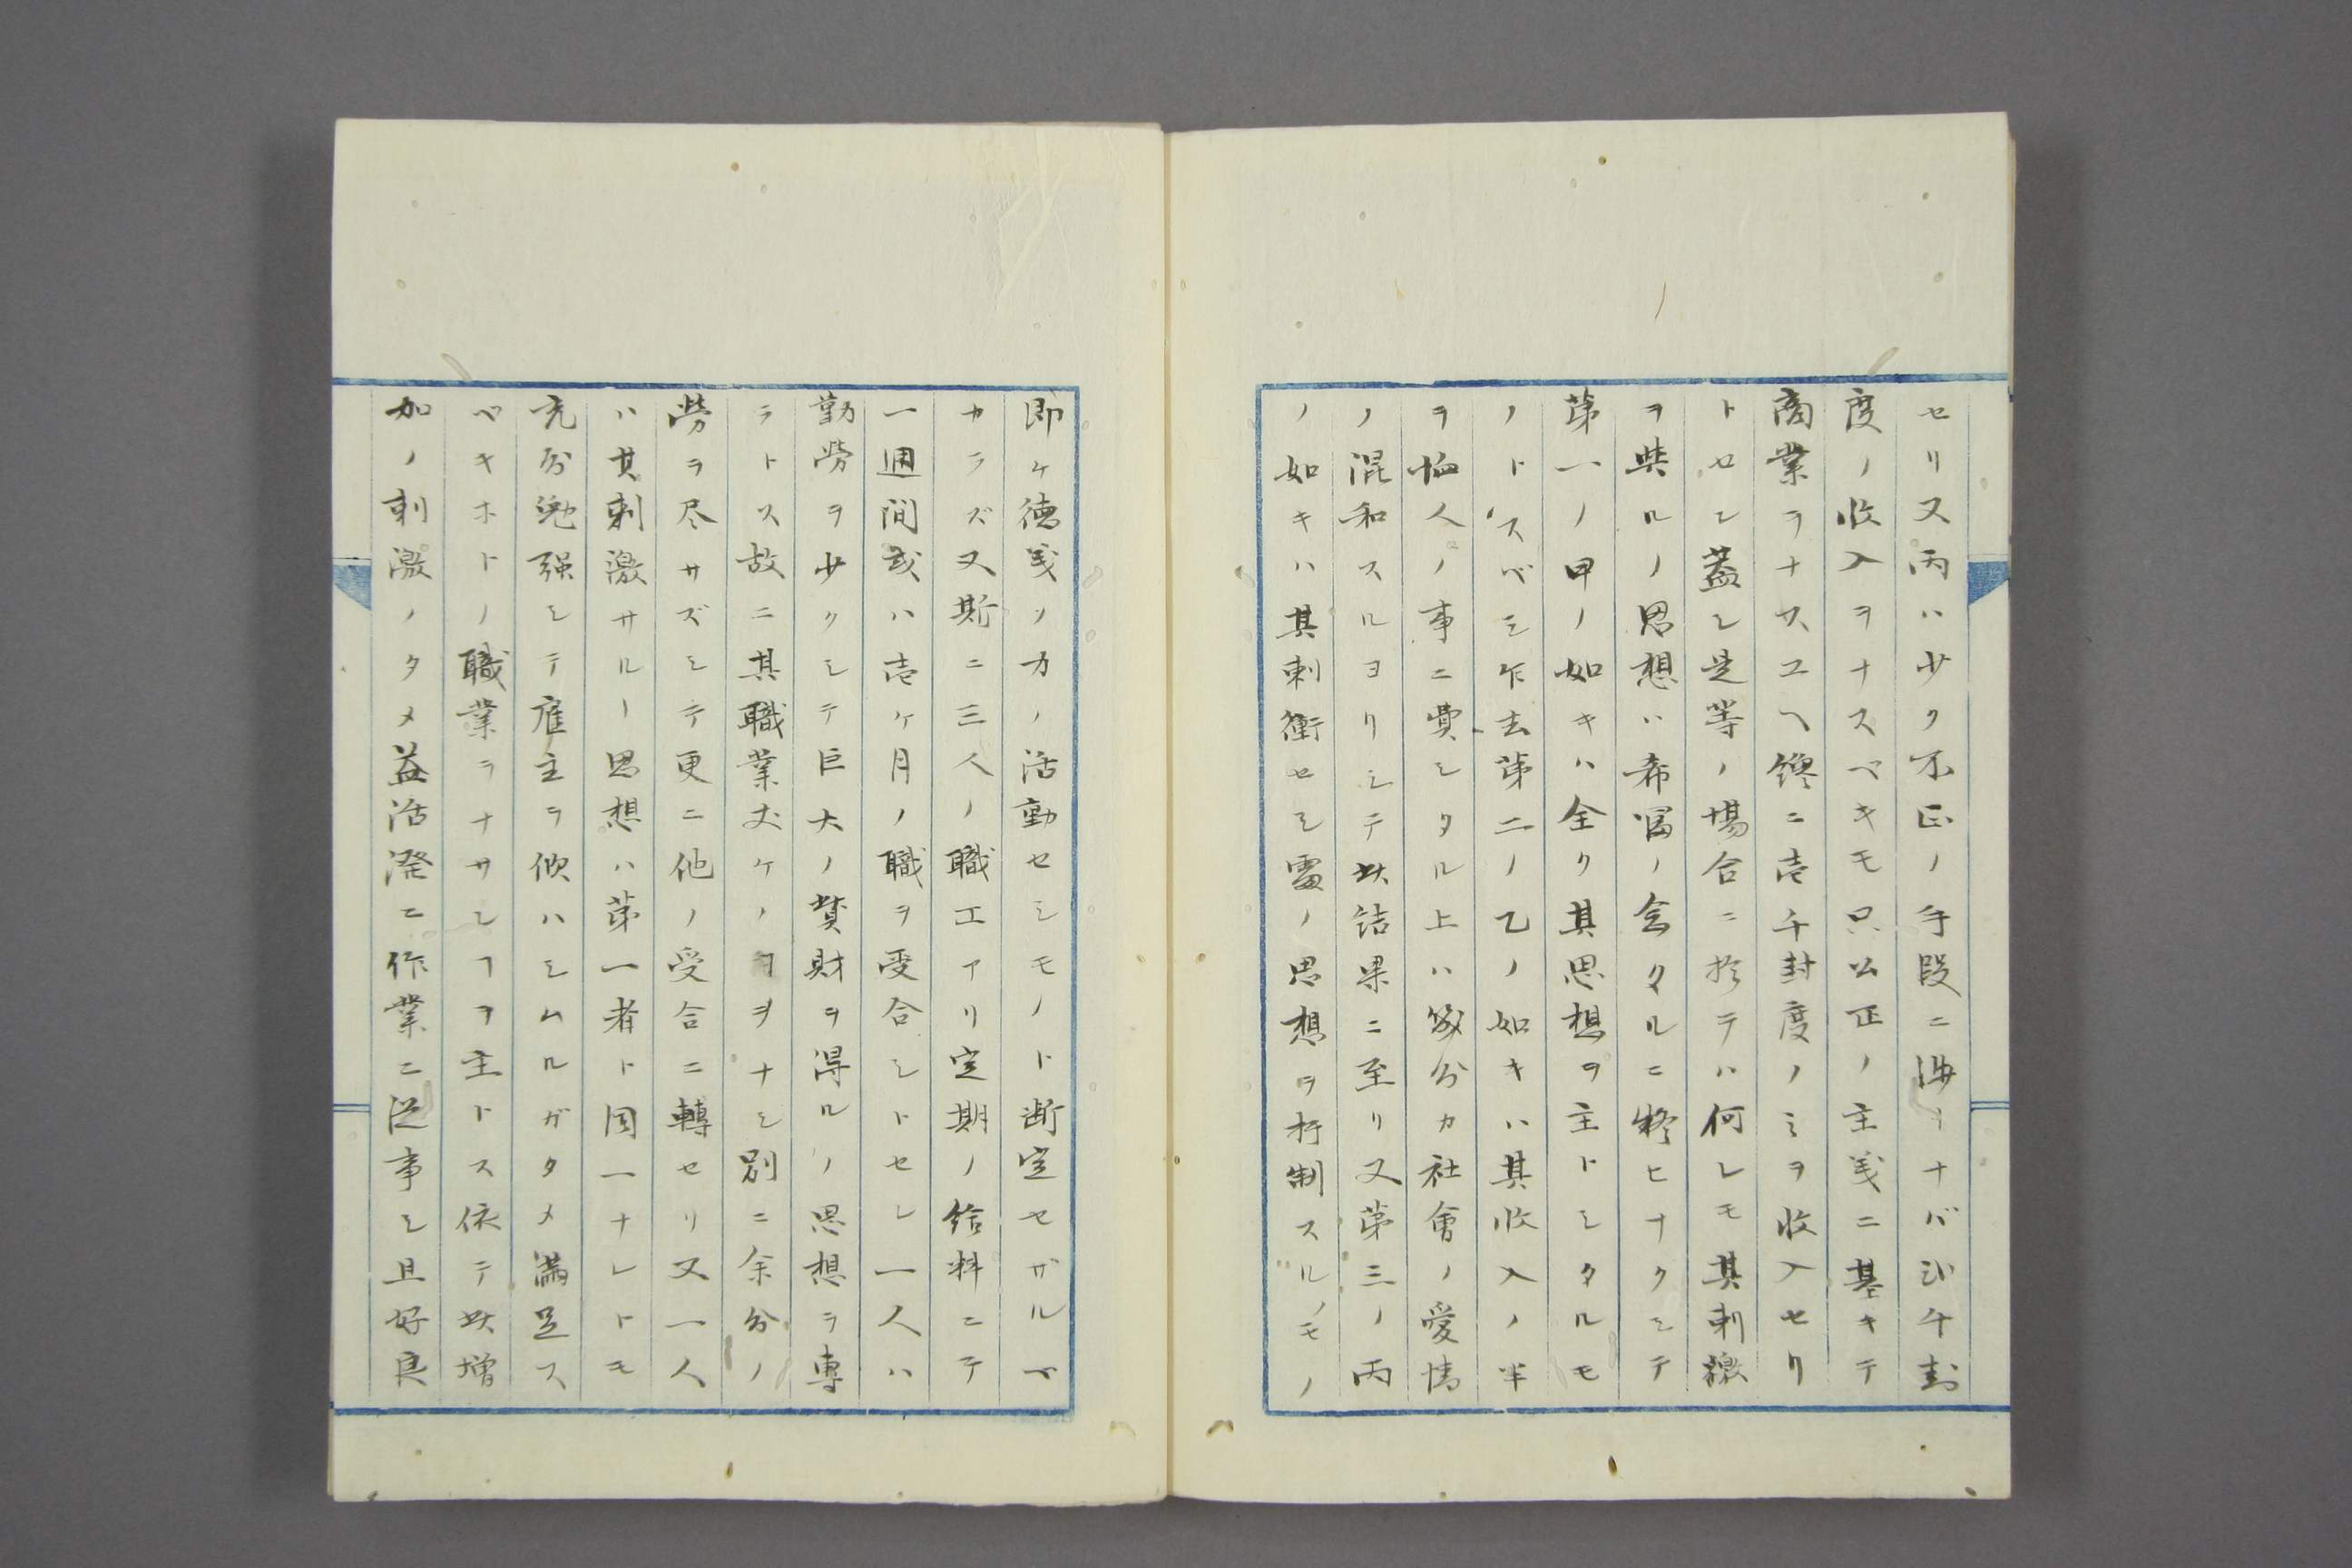 セリ又丙ハ少ク不正ノ手段ニ渉リナバ弐千封
度ノ收入ヲナスベキモ只公正ノ主義ニ基キテ
商業ヲナスユヘ纔ニ壱千封度ノミヲ收入セリ
トセン蓋シ是等ノ場合ニ於テハ何レモ其刺激
ヲ與ルノ思想ハ希冨ノ念タルニ疑ヒナクシテ
第一ノ甲ノ如キハ全ク其思想ヲ主トシタルモ
ノトスベシ乍去第二ノ乙ノ如キハ其收入ノ半
ヲ恤人ノ事ニ費シタル上ハ幾分カ社會ノ愛情
ノ混和スルヨリシテ此結果ニ至リ又第三ノ丙
ノ如キハ其刺衝セシ富ノ思想ヲ抑制スルモノ
即ケ徳義ノ力ノ活動セシモノト断定セザルベ
カラズ又斯ニ三人ノ職工アリ定期ノ給料ニテ
一週間或ハ壱ケ月ノ職ヲ受合シトセン一人ハ
勤勞ヲ少クシテ巨大ノ貲財ヲ得ルノ思想ヲ專
ラトス故ニ其職業丈ケノヿヲナシ別ニ余分ノ
勞ヲ尽サズシテ更ニ他ノ受合ニ轉セリ又一人
ハ其刺激サルヽ思想ハ第一者ト同一ナレトモ
充分勉强シテ雇主ヲ倹ハシムルガタメ滿足ス
ベキホトノ職業ヲナサンヿヲ主トス依テ此增
加ノ刺激ノタメ益活溌ニ作業ニ従事シ且好良